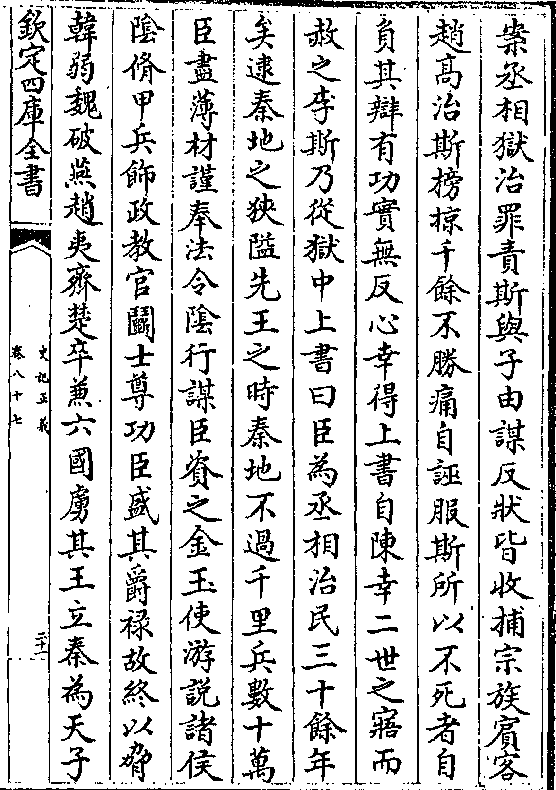 案丞相獄治罪責斯與子由謀反狀皆收捕宗族賓客
趙髙治斯榜掠千餘不勝痛自誣服斯所以不死者自
負其辯有功實無反心幸得上書自陳幸二世之寤而
赦之李斯乃從獄中上書曰臣為丞相治民三十餘年
矣逮秦地之狹隘先王之時秦地不過千里兵數十萬
臣盡薄材謹奉法令隂行謀臣資之金玉使游説諸侯
隂脩甲兵飾政教官鬬士尊功臣盛其爵禄故終以脅
韓弱魏破燕趙夷齊楚卒兼六國虜其王立秦為天子
欽定四庫全書
史記正義
卷八十七
二十